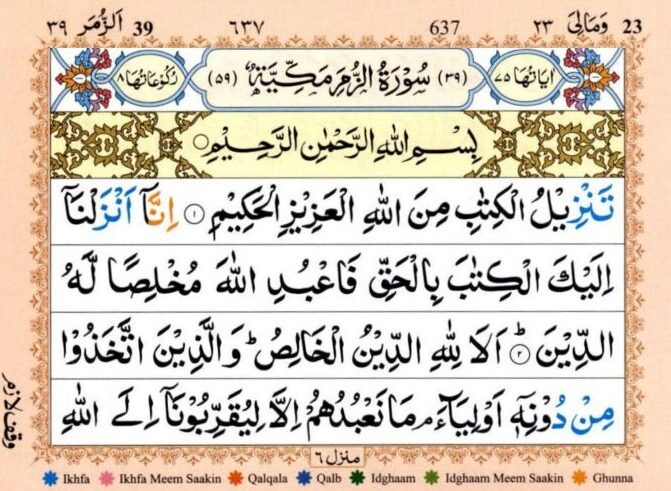 اَلزُّمَر ٣٩ 39 ٦٣٧ 637 وَمَالِيَ ٢٣ 23
اٰيَاتُهَا ٧٥ (٣٩) سُوْرَةُ الزُّمَرِ مَكِّيَّةٌ (٥٩) رُكُوْعَاتُهَا ٨
بِسْمِ اللهِ الرَّحْمٰنِ الرَّحِيْمِ
تَنْزِيْلُ الْكِتٰبِ مِنَ اللهِ الْعَزِيْزِ الْحَكِيْمِ ۝١ اِنَّاۤ اَنْزَلْنَاۤ
اِلَيْكَ الْكِتٰبَ بِالْحَقِّ فَاعْبُدِ اللهَ مُخْلِصًا لَّهُ
الدِّيْنَ ؕ۝٢ اَلَا لِلّٰهِ الدِّيْنُ الْخَالِصُ ؕ وَالَّذِيْنَ اتَّخَذُوْا
مِنْ دُوْنِهٖۤ اَوْلِيَآءَ ۘ مَا نَعْبُدُهُمْ اِلَّا لِيُقَرِّبُوْنَاۤ اِلَى اللهِ
وقف لازم
منزل ٦
Ikhfa Ikhfa Meem Saakin Qalqala Qalb Idghaam Idghaam Meem Saakin Ghunna